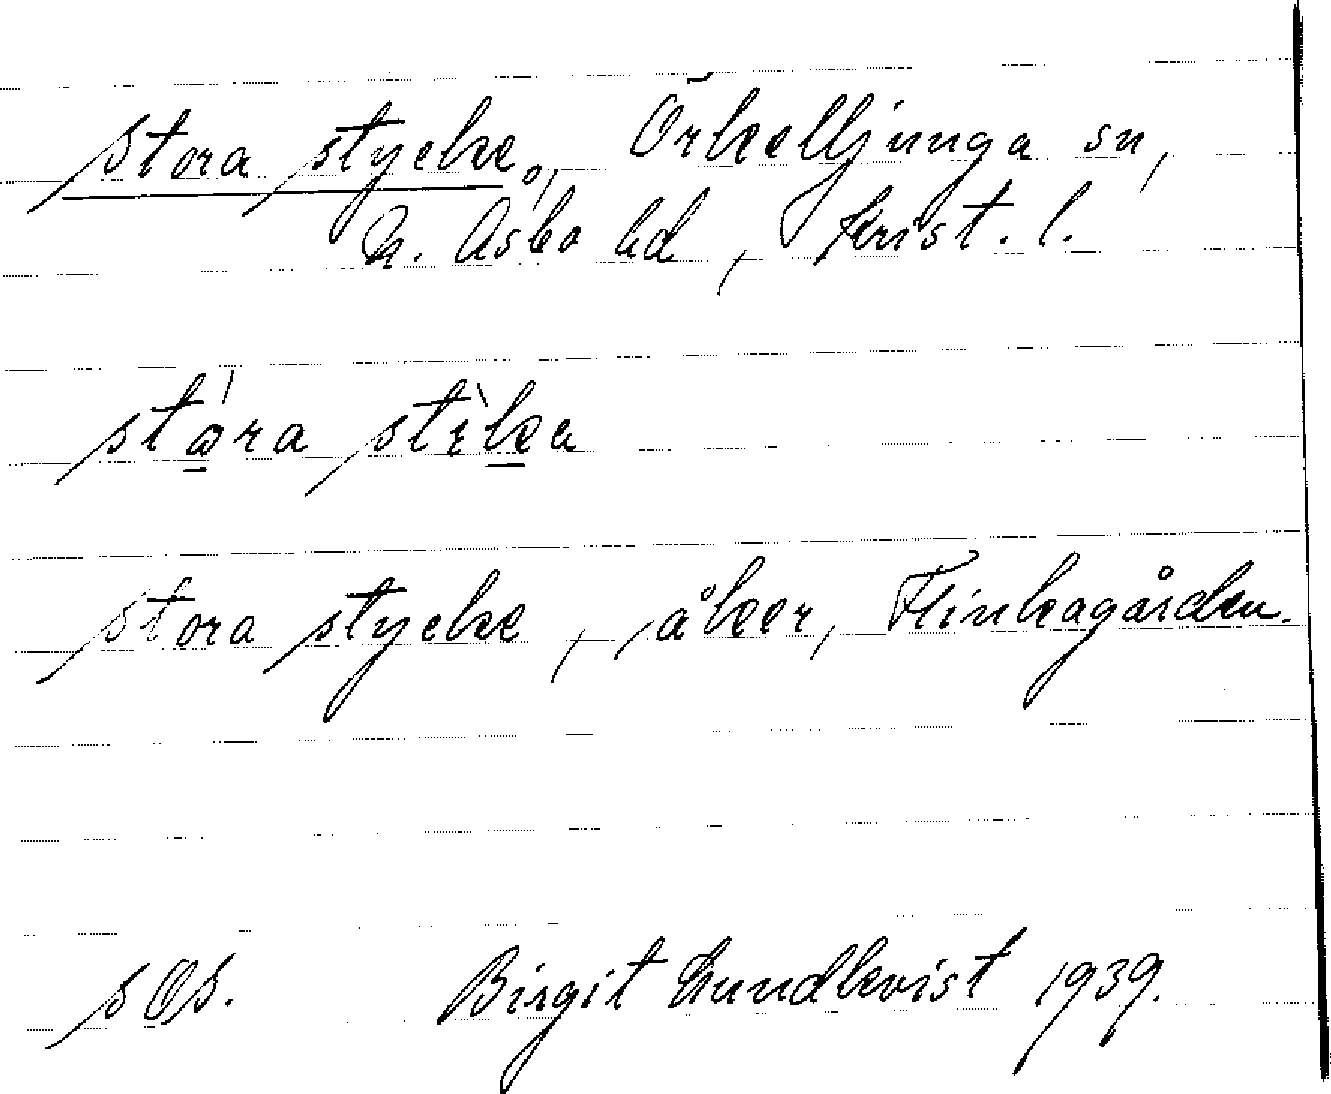 stora stycke, Örkelljunga sn,
N. Åsbo hd, Krist. l.
stóra stỳka
stora stycke, åker, Flinkagården.
s Ös. Birgit Lundkvist 1939.